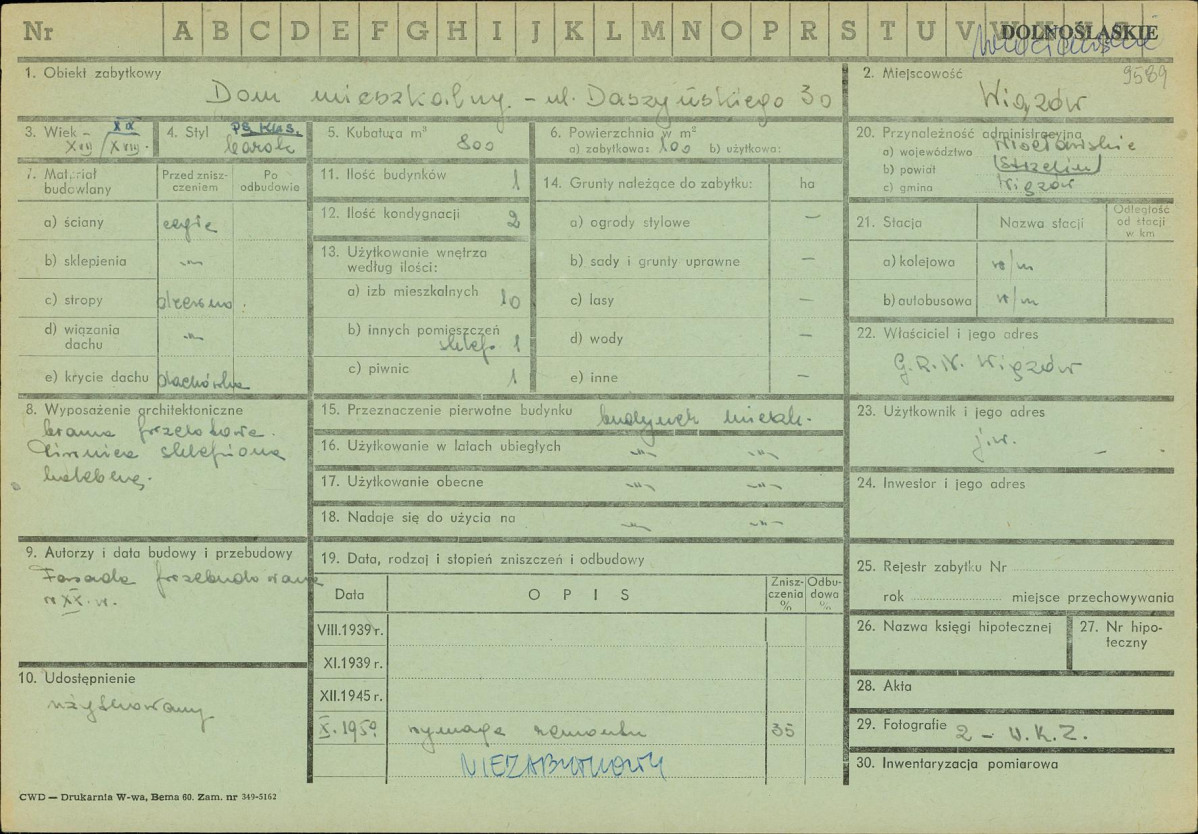 Nr A B C D E F G H I J K L M N O P R S T U V W DOLNOŚLĄSKIE
Wrocławskie
9589
1. Obiekt zabytkowy
Dom mieszkalny. – ul. Daszyńskiego 30
2. Miejscowość
Wiązów
3. Wiek –
XIX
XVII / XVIII.
4. Styl
ps. klas.
barok
5. Kubatura m³
800
6. Powierzchnia w m²
a) zabytkowa: 100 b) użytkowa:
20. Przynależność administracyjna
a) województwo Wrocławskie
b) powiat (Strzelin)
c) gmina Wiązów
7. Materiał budowlany
Przed zniszczeniem
Po odbudowie
a) ściany cegła
b) sklepienia –"–
c) stropy drewno.
d) wiązania dachu –"–
e) krycie dachu dachówka
11. Ilość budynków 1
12. Ilość kondygnacji 2
13. Użytkowanie wnętrza według ilości:
a) izb mieszkalnych 10
b) innych pomieszczeń
sklep. 1
c) piwnic 1
14. Grunty należące do zabytku: ha
a) ogrody stylowe –
b) sady i grunty uprawne –
c) lasy –
d) wody –
e) inne –
21. Stacja
Nazwa stacji
Odległość od stacji w km
a) kolejowa w/m
b) autobusowa w/m
22. Właściciel i jego adres
G.R.N. Wiązów
8. Wyposażenie architektoniczne
brama przelotowa.
Piwnica sklepiona
kolebką.
15. Przeznaczenie pierwotne budynku budynek mieszk.
16. Użytkowanie w latach ubiegłych –"– –"–
17. Użytkowanie obecne –"– –"–
18. Nadaje się do użycia na –"– –"–
23. Użytkownik i jego adres
j.w. –
24. Inwestor i jego adres
9. Autorzy i data budowy i przebudowy
Fasada przebudowana
w XX. w.
19. Data, rodzaj i stopień zniszczeń i odbudowy
Data
O P I S
Zniszczenia %
Odbudowa %
VIII.1939 r.
XI.1939 r.
XII.1945 r.
X.1959 wymaga remontu 35
NIEZABYTKOWY
25. Rejestr zabytku Nr
rok miejsce przechowywania
26. Nazwa księgi hipotecznej
27. Nr hipoteczny
10. Udostępnienie
użytkowany
28. Akta
29. Fotografie 2 – W.K.Z.
30. Inwentaryzacja pomiarowa
CWD — Drukarnia W-wa, Bema 60. Zam. nr 349-5162